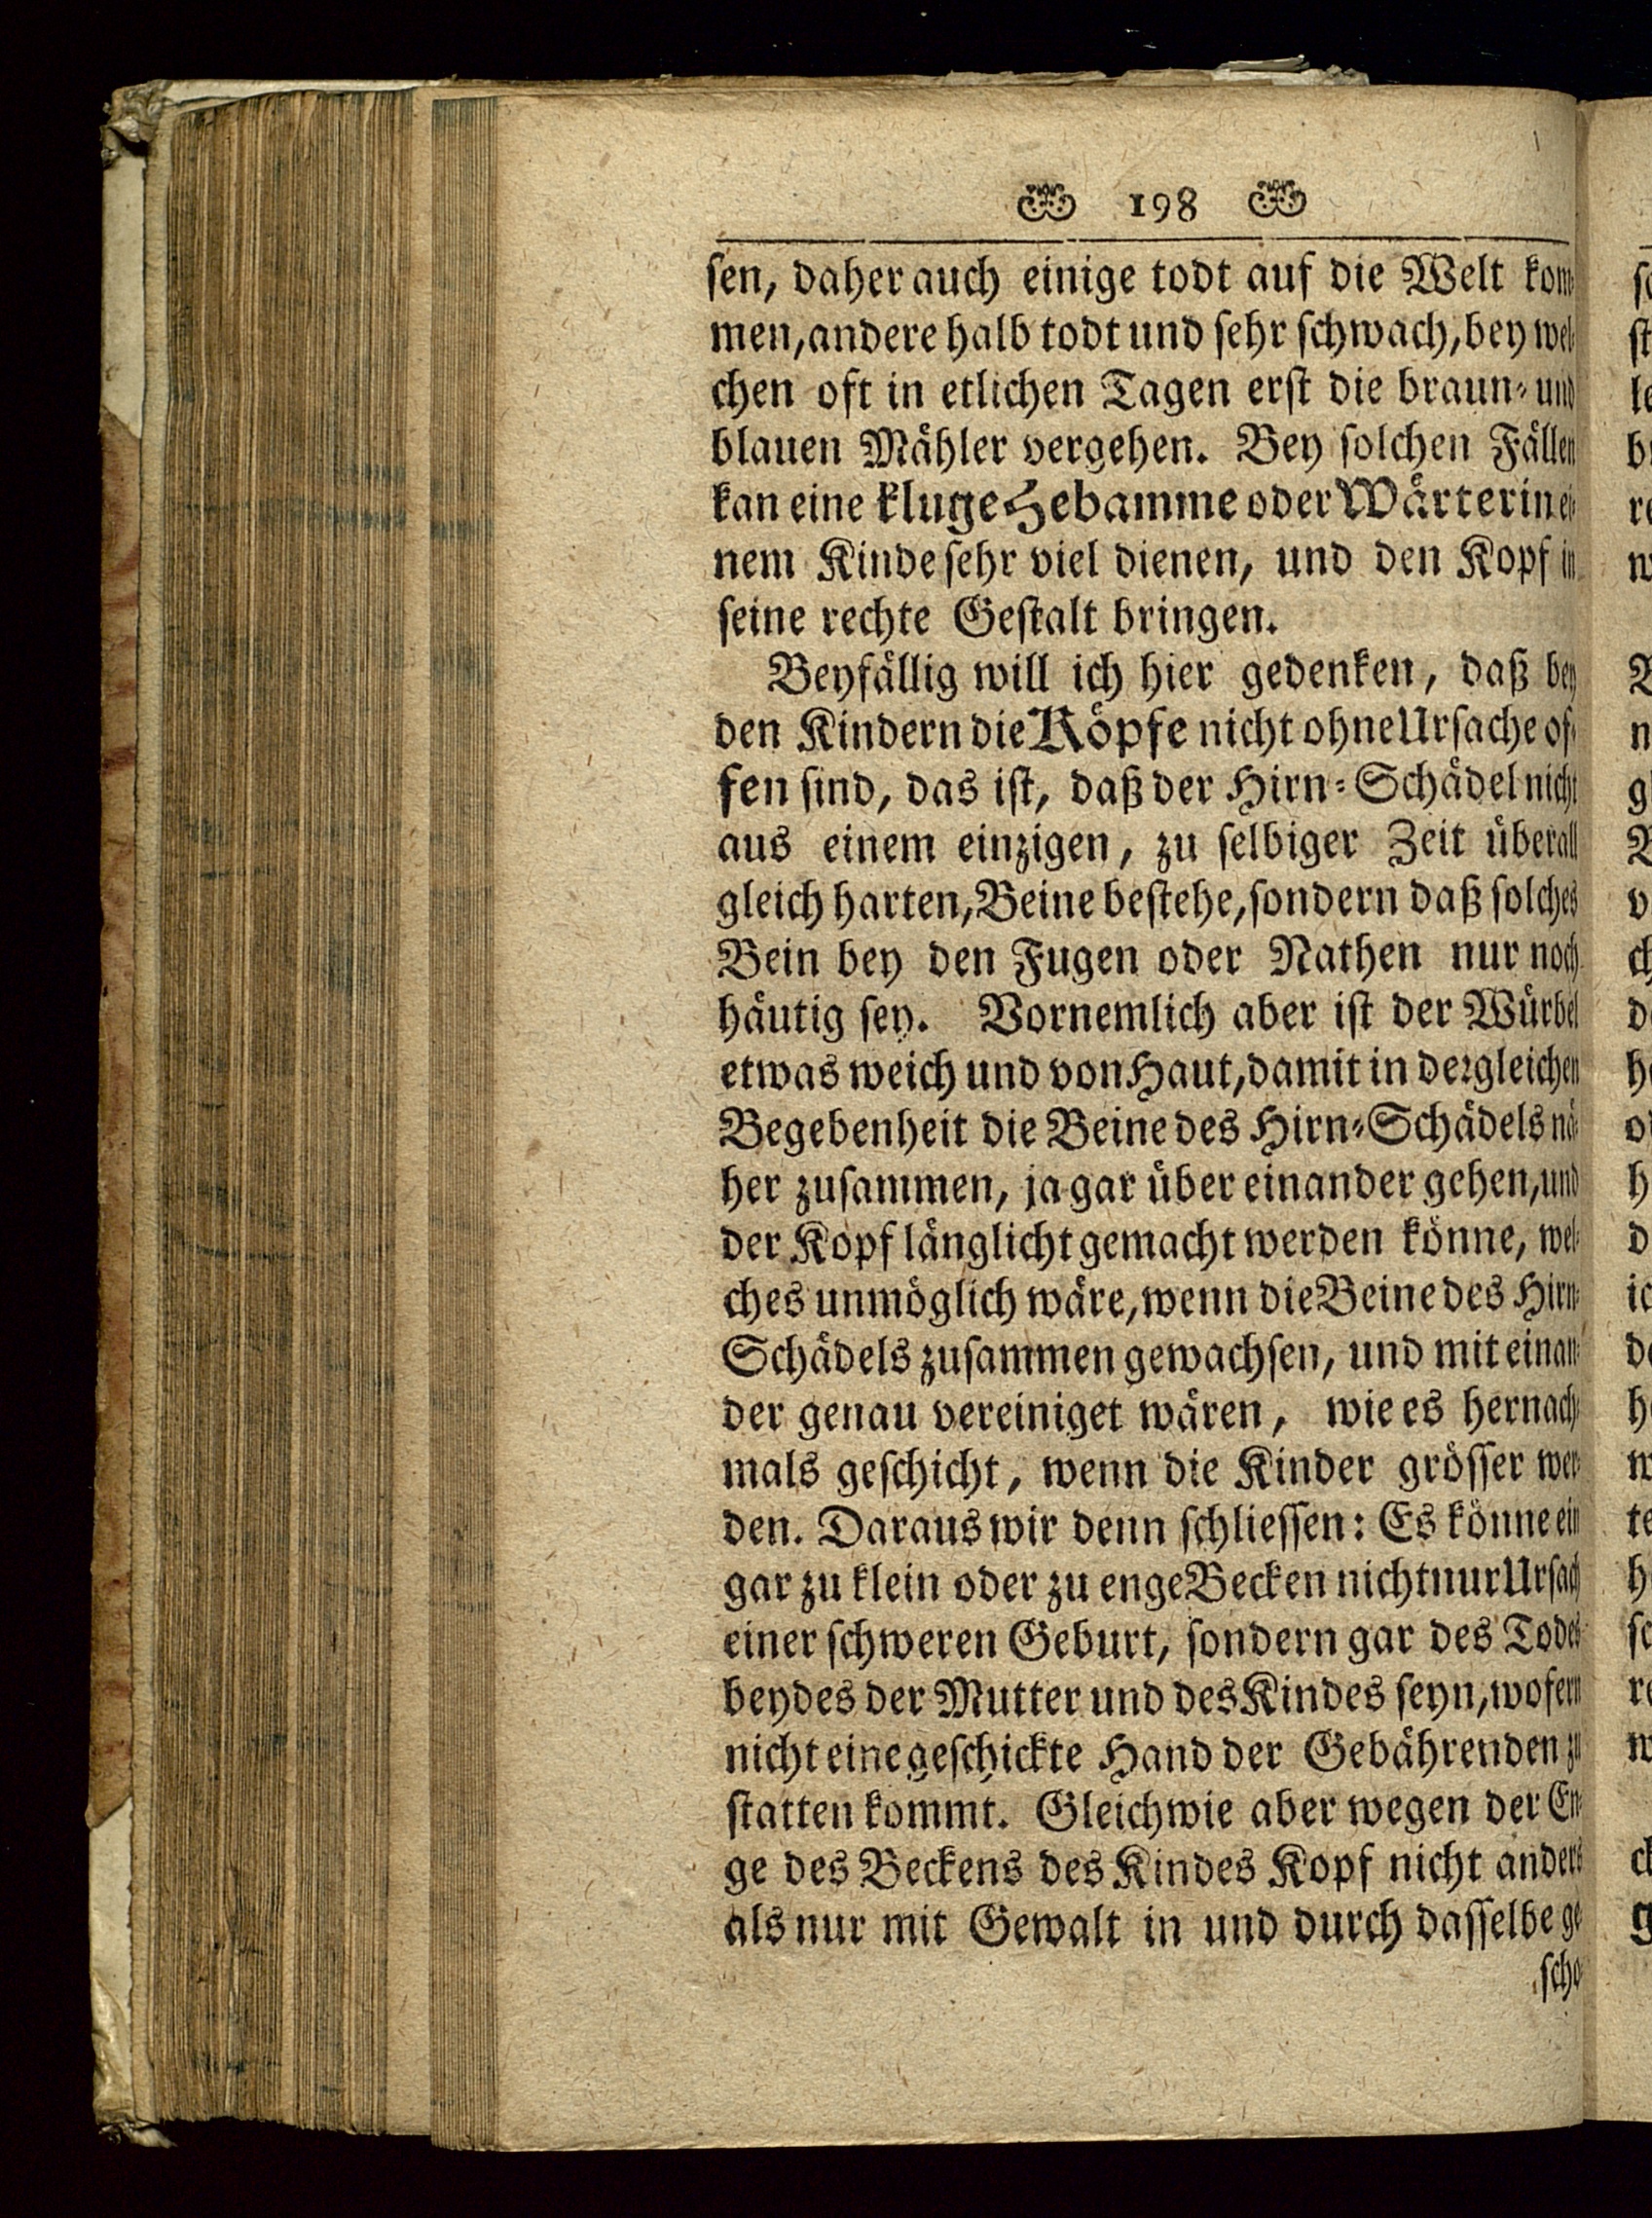 198
sen, daher auch einige todt auf die Welt kom-
men, andere halb todt und sehr schwach, bey wel-
chen oft in etlichen Tagen erst die braun- und
blauen Mähler vergehen. Bey solchen Fällen
kan eine kluge Hebamme oder Wärterin ei-
nem Kinde sehr viel dienen, und den Kopf in
seine rechte Gestalt bringen.
Beyfällig will ich hier gedenken, daß bey
den Kindern die Köpfe nicht ohne Ursache of-
fen sind, das ist, daß der Hirn-Schädel nicht
aus einem einzigen, zu selbiger Zeit überall
gleich harten, Beine bestehe, sondern daß solches
Bein bey den Fugen oder Nathen nur noch
häutig sey. Vornemlich aber ist der Würbel
etwas weich und von Haut, damit in dergleichen
Begebenheit die Beine des Hirn-Schädels nä-
her zusammen, ja gar über einander gehen, und
der Kopf länglicht gemacht werden könne, wel-
ches unmöglich wäre, wenn die Beine des Hirn-
Schädels zusammen gewachsen, und mit einan-
der genau vereiniget wären, wie es hernach-
mals geschicht, wenn die Kinder grösser wer-
den. Daraus wir denn schliessen: Es könne ein
gar zu klein oder zu enge Becken nicht nur Ursach
einer schweren Geburt, sondern gar des Todes
beydes der Mutter und des Kindes seyn, wofern
nicht eine geschickte Hand der Gebährenden zu
statten kommt. Gleichwie aber wegen der En-
ge des Beckens des Kindes Kopf nicht anders
als nur mit Gewalt in und durch dasselbe ge-
scho-